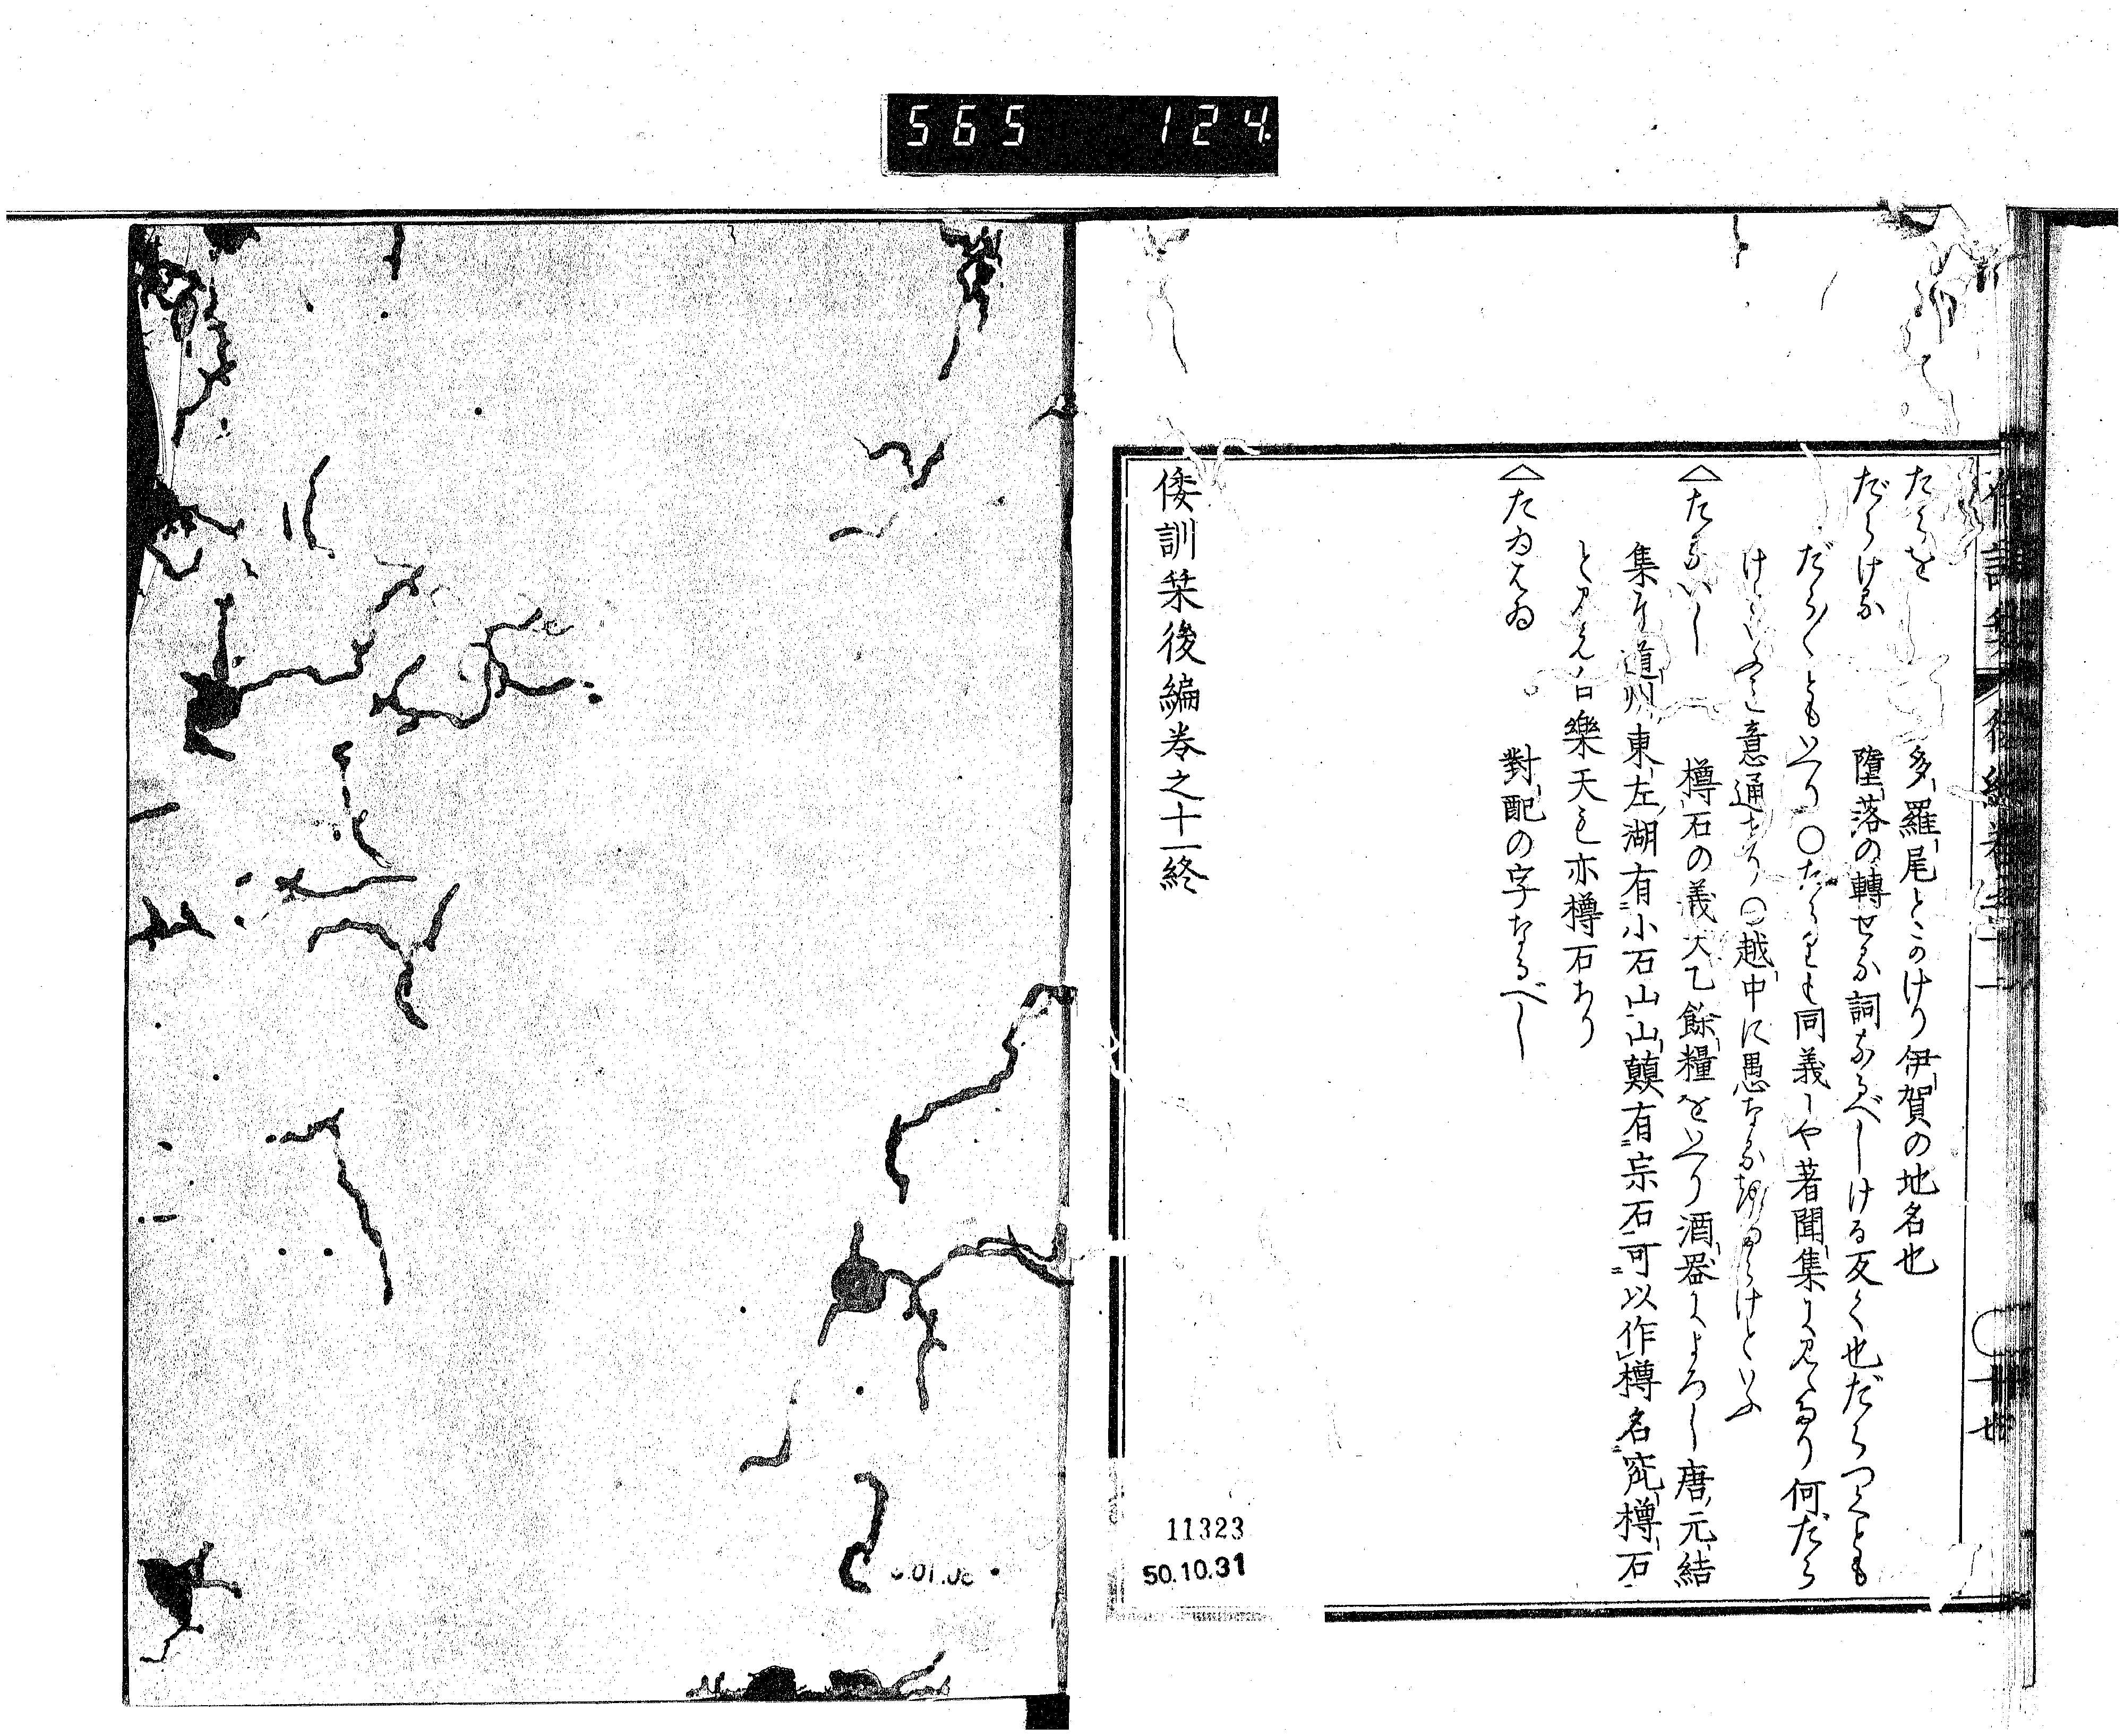 565 124
たらを 多羅尾とかけり伊賀の地名也
だらける 墮落の轉せる詞なるべしける反く也だらつくとも
だら〳〵ともいへり〇たらりも同義しや著聞集に見えたり何だら
意通へり〇越中に愚なる をだらけといふ
△たるいし 樽石の義大乙餘糧をいへり酒器によろし唐元結
集に道州東左湖有小石山山巓有宗石可以作樽名窊樽石
と見え白樂天も亦樽石あり
△たゐはゐ 對配の字なるべし
倭訓栞後編卷之十一終
11323
50.10.31